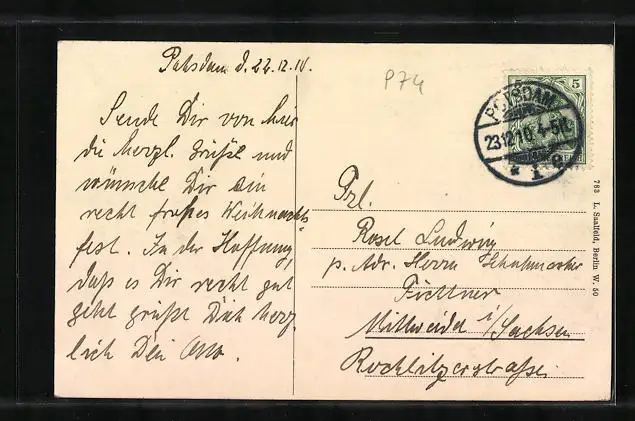 Potsdam d. 22.12.10.
P74
Sende Dir von hier
die herzl. Grüße und
wünsche Dir ein
recht frohes Weihnachts-
fest. In der Hoffnung,
daß es Dir recht gut
geht grüßt Dich herz
lich Dein Otto.
5
POTSDAM
23.12.10. 4-5N.
* 1
Frl.
Rosel Ludwig
p. Adr. Herrn Schuhmacher
Fichtner
Mittweida i/Sachsen
Rochlitzerstraße.
783 L. Saalfeld, Berlin W. 50